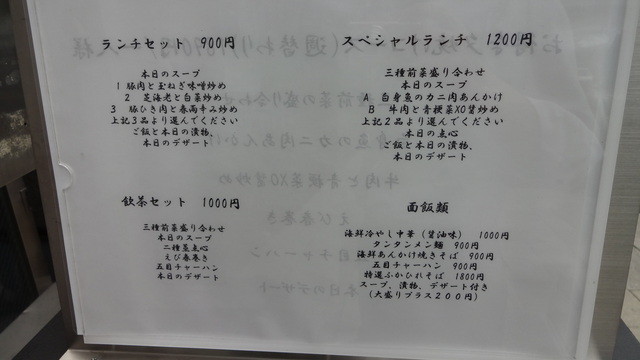 ランチセット 900円
本日のスープ
1 豚肉と玉ねぎ味噌炒め
2 芝海老と白菜炒め
3 豚ひき肉と春雨辛みそ炒め
上記3品より選んでください
ご飯と本日の漬物、
本日のデザート
スペシャルランチ 1200円
三種前菜盛り合わせ
本日のスープ
A 白身魚のカニ肉あんかけ
B 牛肉と青梗菜XO醤炒め
上記2品より選んでください
本日の点心
ご飯と本日の漬物、
本日のデザート
飲茶セット 1000円
三種前菜盛り合わせ
本日のスープ
二種蒸点心
えび春巻き
五目チャーハン
本日のデザート
面飯類
海鮮冷やし中華(醤油味) 1000円
タンタンメン麺 900円
海鮮あんかけ焼きそば 900円
五目チャーハン 900円
特選ふかひれそば 1800円
スープ、漬物、デザート付き
(大盛りプラス200円)